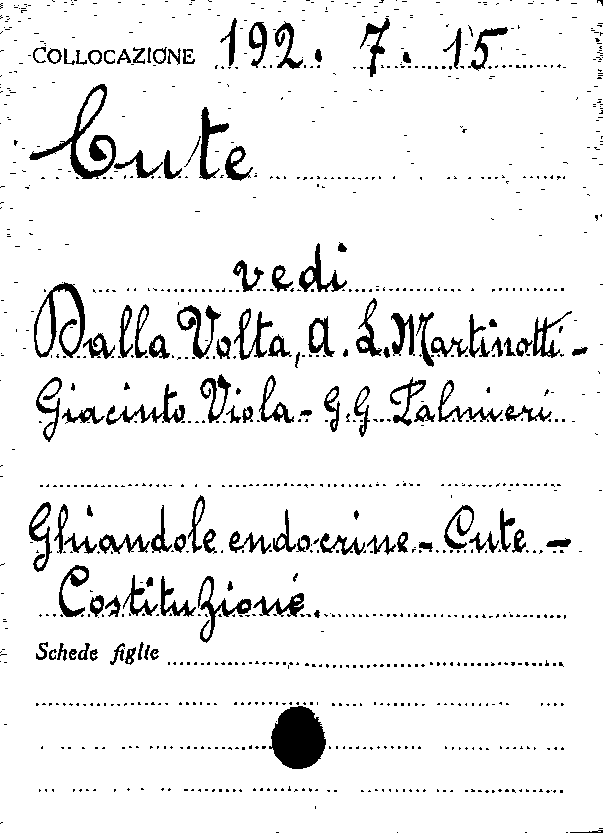 COLLOCAZIONE 192. 7. 15
Cute
vedi
Dalla Volta, A. L. Martinotti -
Giacinto Viola - G. G Palmieri
Ghiandole endocrine - Cute -
Costituzione.
Schede figlie